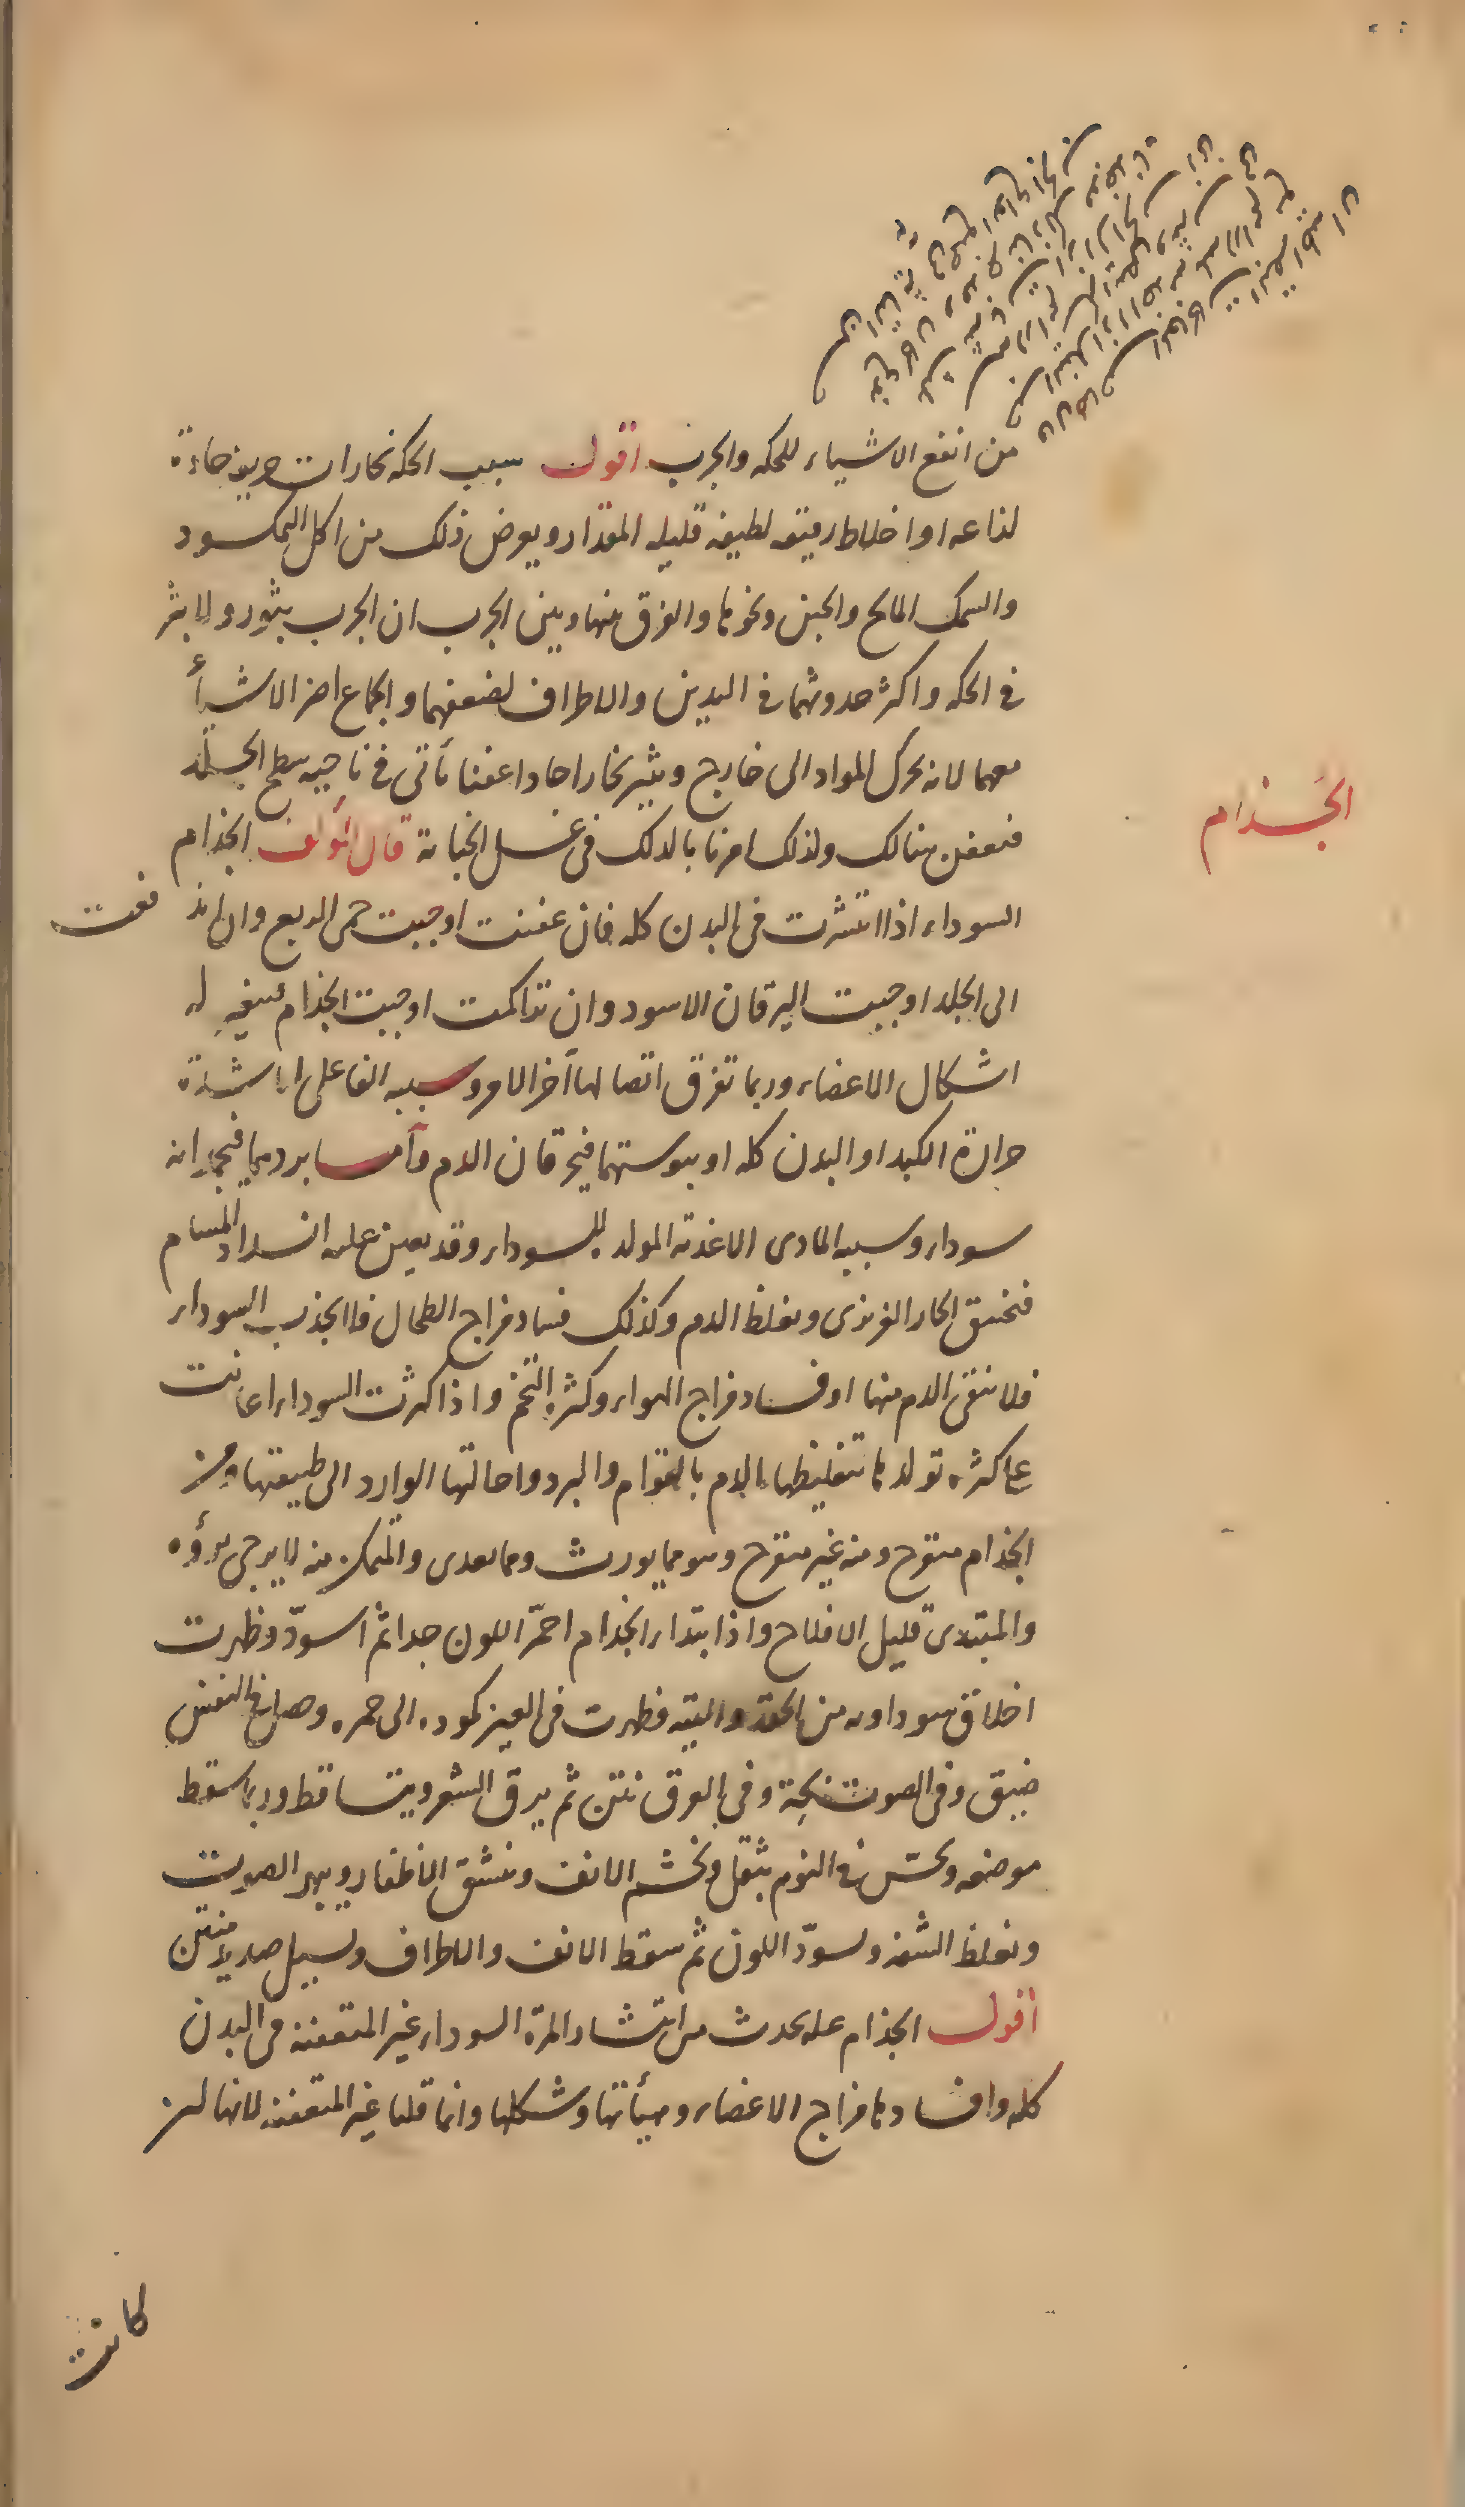 من انفع الاشياء للحكه والجرب اقول سبب الحكه بخارات حريفه حادة
لذاعه او اخلاط رقيقه لطيفه قليله المقدار ويعرض ذلك من اكل النمكسود
والسمك المالح والجبن ونحوها والفرق بينها وبين الجرب ان الجرب بثور ولا بثر
في الحكه واكثر حدوثهما في اليدين والاطراف لضعفهما والجماع اضر الاشيأ
معهما لانه يحرك المواد الى خارج ويثير بخارا حادا عفنا يأتى في ناحيه سطح الجلد
فيعفن هنالك ولذلك امرنا بالدلك في غسل الجنابة قال المؤلف الجذام
الجذام
السوداء اذا انتشرت في البدن كله فان عفنت اوجبت حمى الربع وان اند فعت
الى الجلد اوجبت اليرقان الاسود وان تراكمت اوجبت الجذام فيتغير له
اشكال الاعضاء وربما تفرق اتصالها آخر الامر وسببه الفاعلى اما شدة
حرارة الكبد او البدن كله او يبوستهما فيحرقان الدم وأما بردهما فيجمدانه
سوداء وسببه المادى الاغذيه المولده للسوداء وقد يعين عليه انسداد المسام
فيختنق الحار الغريزى ويغلظ الدم وكذلك فساد مزاج الطحال فلا يجذب السوداء
فلا ينقى الدم منها او فساد مزاج الهواء وكثرة التخم واذا كثرت السوداء اعانت
على كثره تولدها بتغليظها الدم بالقوام والبرد واحالتها الوارد الى طبيعتها ومن
الجذام متقرح ومنه غير متقرح وهو مما يورث ومما يعدى والمتمكن منه لا يرجى برؤه
والمبتدى قليل الافلاح واذا ابتداء الجذام احمّر اللون جدا ثم اسودّ وظهرت
اخلاق سوداويه من الحقد والتيه وظهرت في العين كموده الى حمره وحصل في النفس
ضيق وفي الصوت بحة وفي العرق نتن ثم يرق الشعر ويتساقط وربما سقط
موضعه ويحس في النوم بثقل ويخشم الانف وينشق الاظفار ويبح الصوت
ويغلظ الشفه ويسودّ اللون ثم سقط الانف والاطراف ويسيل صديد منتن
اقول الجذام عله يحدث من انتشار المرة السوداء غير المتعفنه في البدن
كله وافسادها مزاج الاعضاء وهيأتها وشكلها وانما قلنا غير المتعفنه لانها لو
كانت